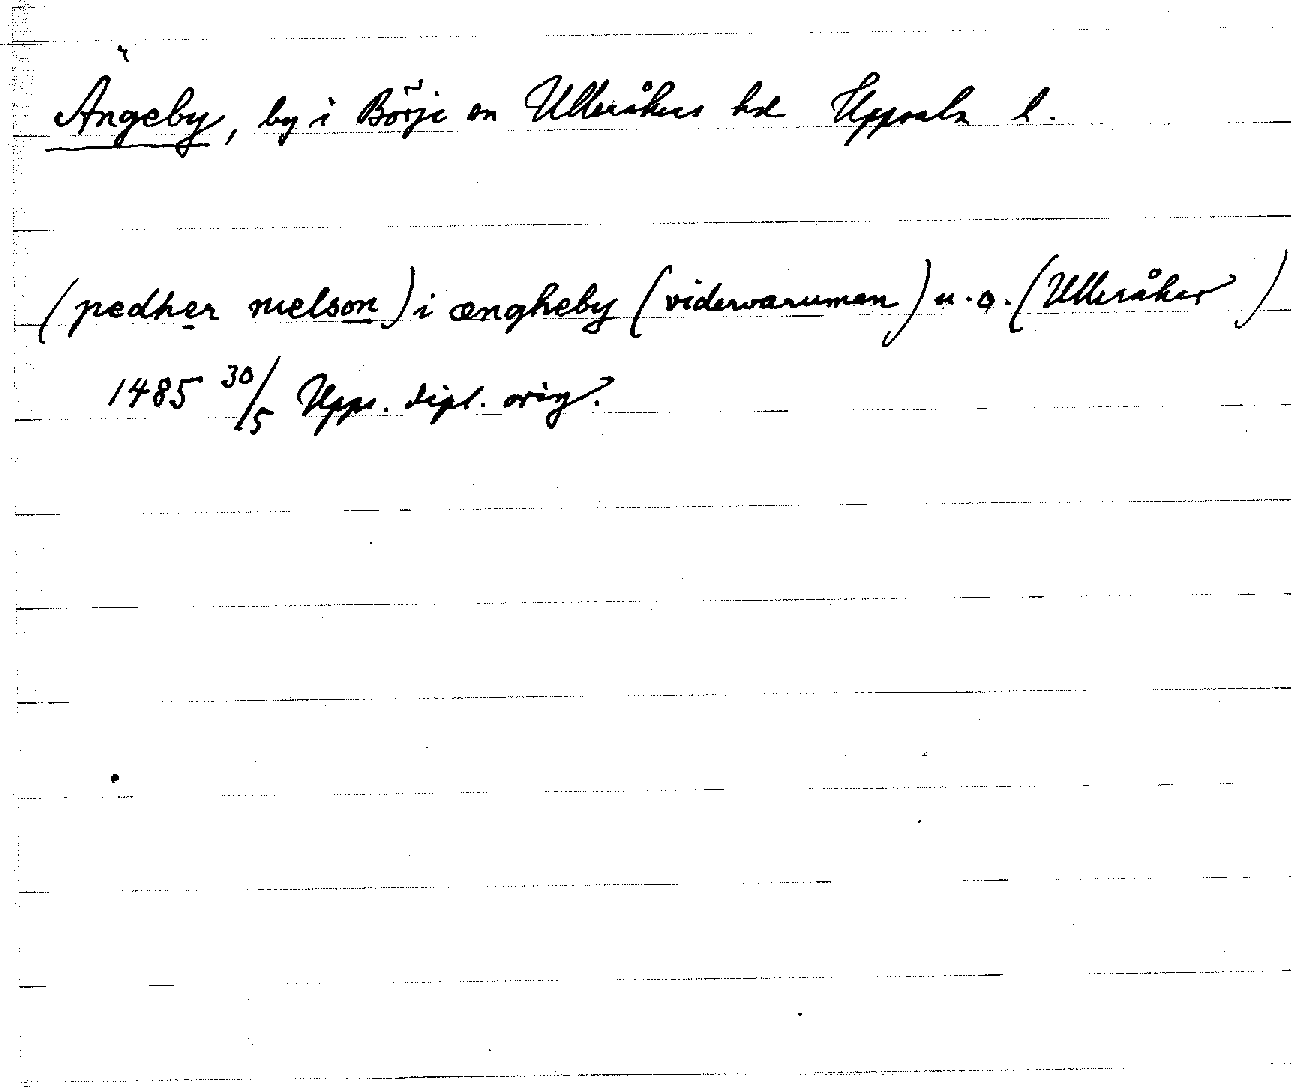 Ängeby, by i Börje sn Ulleråkers hd Uppsala l.
(pedher nielson) i ængheby (vidervaruman) u. o. (Ulleråker)
1485 30/5 Upps. dipl. orig.